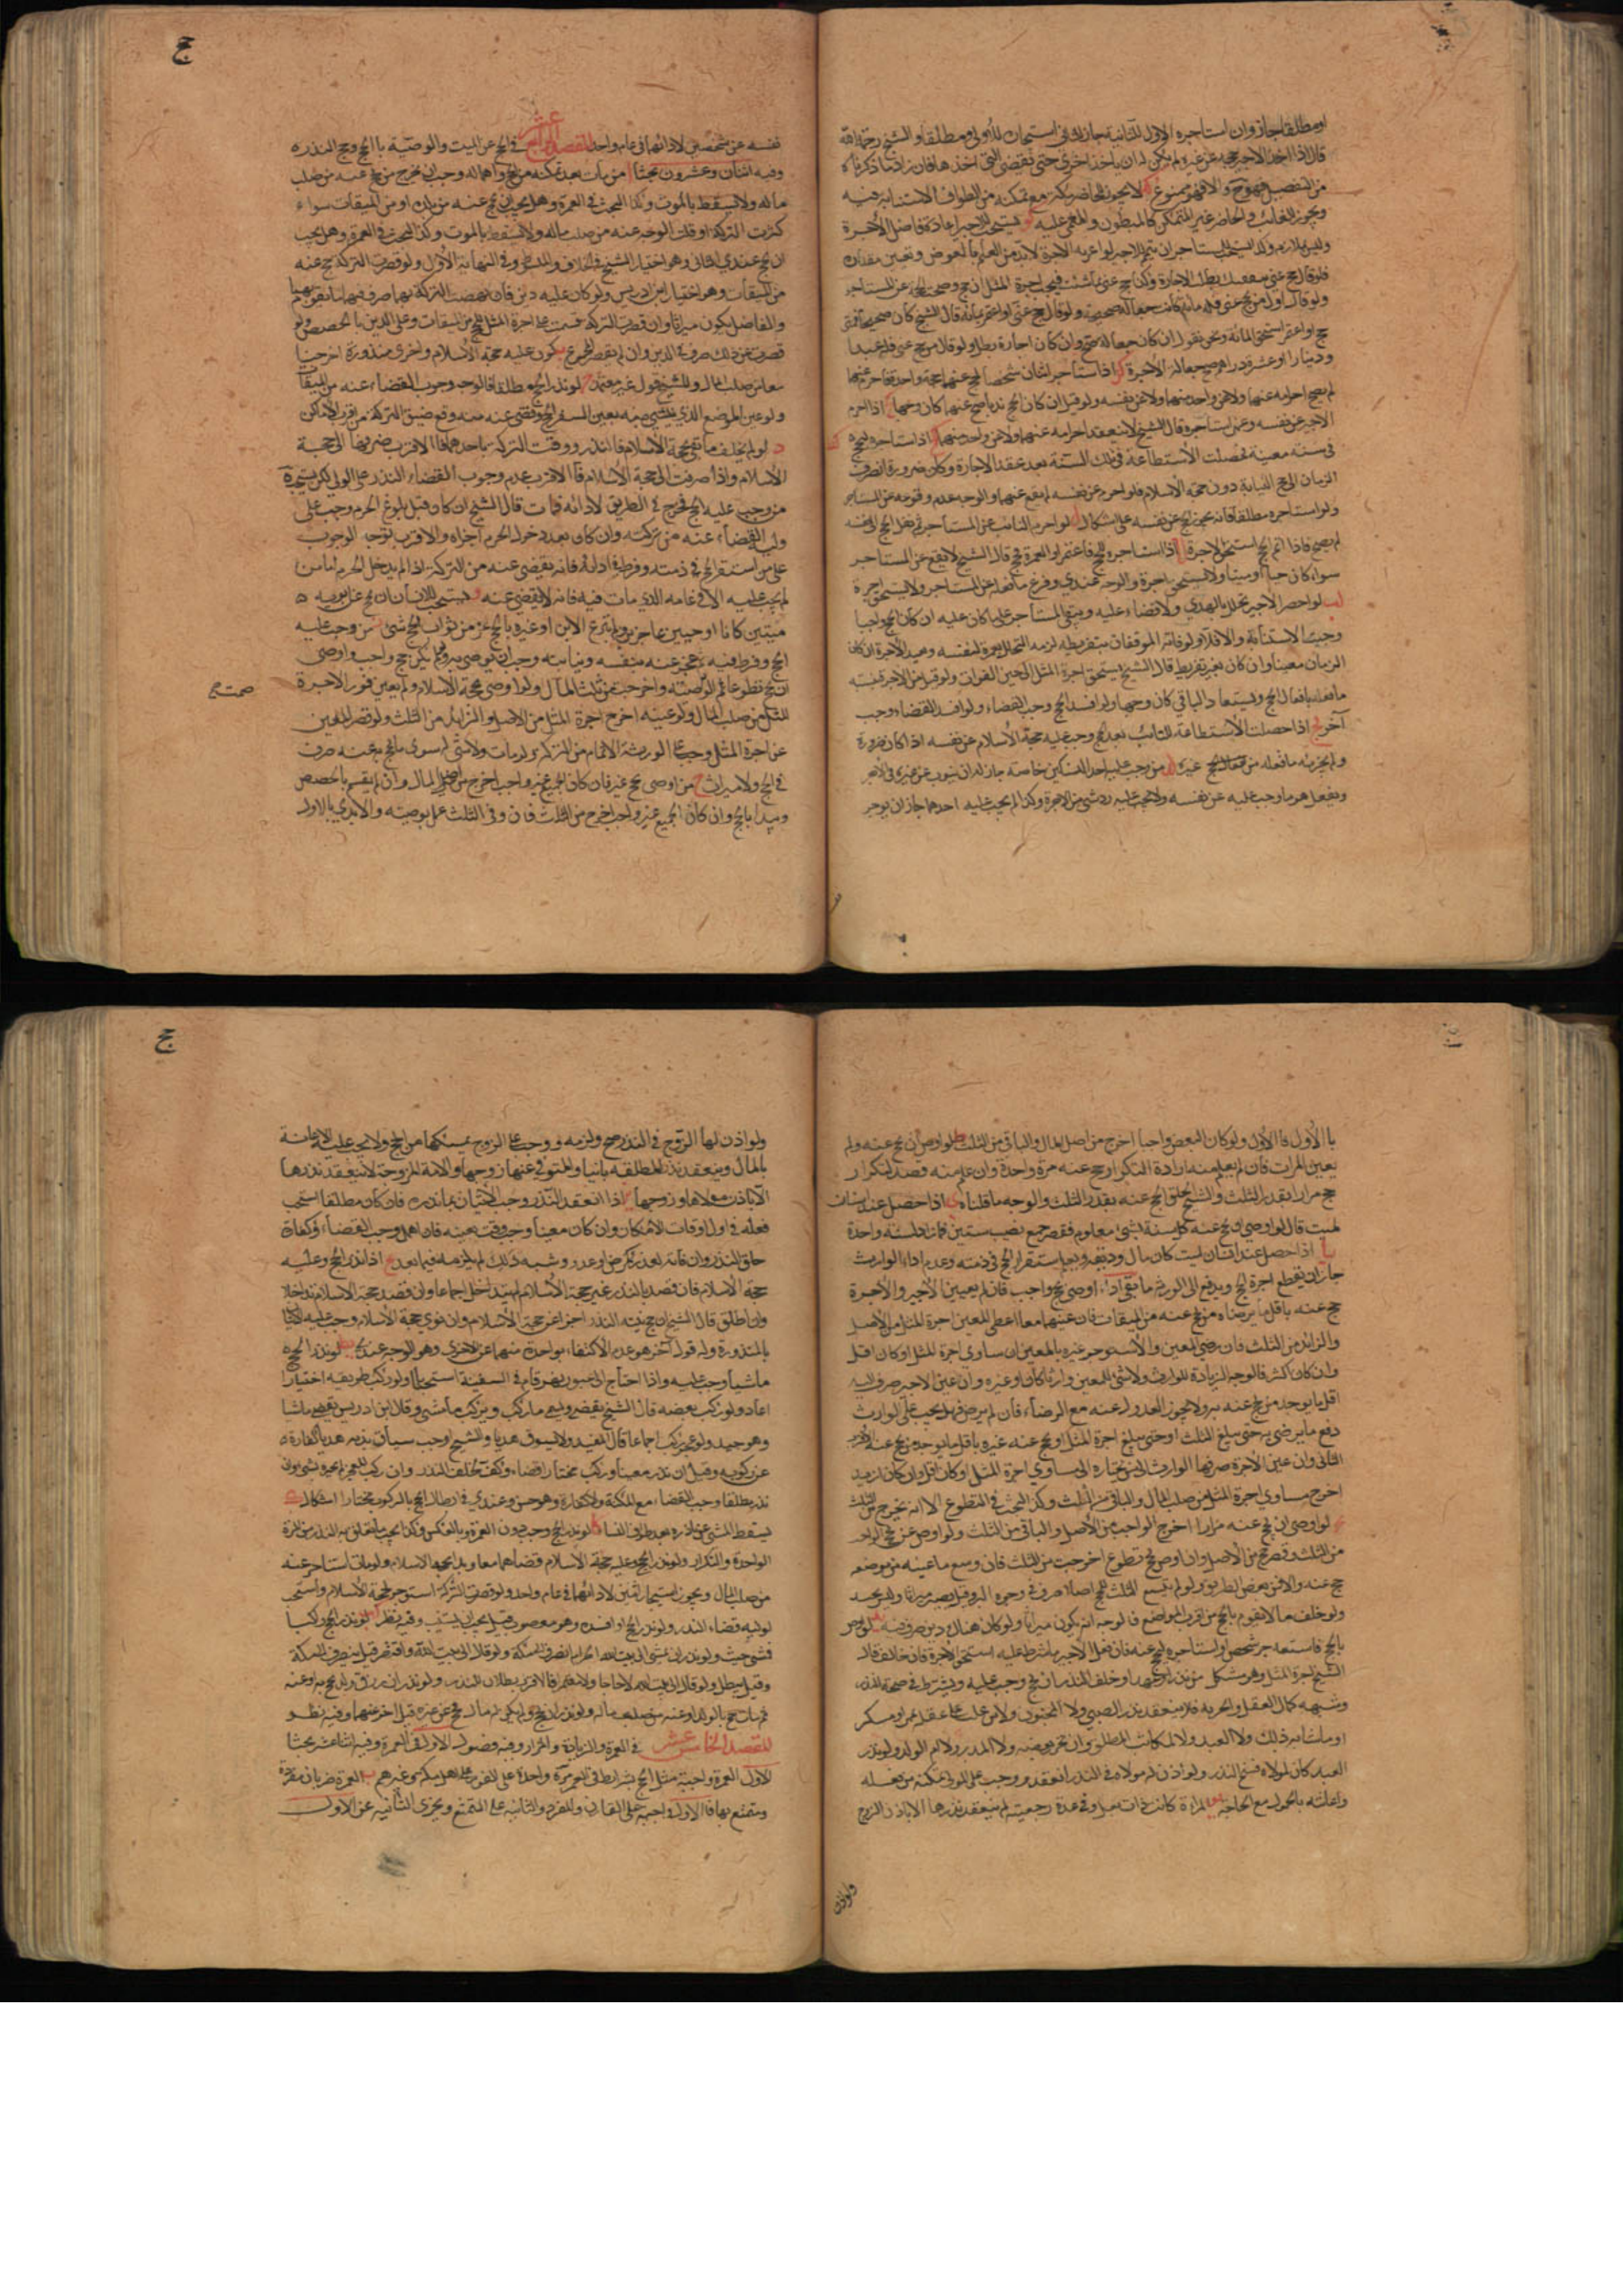 او مطلقا جاز وان استاجره الاول للثانية جاز للثاني استيجاره للاولى ومطلقا والشيخ رحمه الله
قال اذا اخذ الاجير حجة عن غيره لم يكن له ان ياخذ اخرى حتى يقضي التي اخذها فان اراد ما ذكرناه
من التفصيل فهو حق والا فهو ممنوع لا يجوز للحاضر بمكة مع تمكنه من الطواف الاستنابة فيه
ويجوز للغائب والحاضر غير المتمكن كالمبطون والمغمى عليه يستحب للاجير اعادة فاضل الاجرة
وليس بلازم وكذا يستحب للمستاجر ان يتمم للاجير لو اعوزته الاجرة لابد من العلم بالعوض وتعيين مقداره
فلو قال حج عني بنفقتك بطلت الاجارة وكذا حج عني بما شئت فيجب اجرة المثل ان حج وصحت الحجة عن المستاجر
ولو قال اول من يحج عني فله مائة كانت جعالة صحيحة ولو قال حج عني او اعتمر بمائة قال الشيخ كان صحيحا فمتى
حج او اعتمر استحق المائة ونحن نقول ان كان جعالة صح وان كان اجارة بطل ولو قال من حج عني فله عبد او
دينار او عشرة دراهم صح جعالة الاجرة اذا استاجر اثنان شخصا ليحج عنهما حجة واحدة فاحرم عنهما
لم يصح احرامه عنهما ولا عن واحد منهما ولا عن نفسه ولو قيل ان كان الحج ندبا صح عنهما كان وجها اذا احرم
الاجير عن نفسه وعمن استاجره قال الشيخ لا ينعقد احرامه عنهما ولا عن واحد منهما اذا استاجره ليحج
في سنة معينة فحصلت الاستطاعة في تلك السنة بعد عقد الاجارة وكان ضرورة انصرف
الزمان الى حج النيابة دون حجة الاسلام فلو احرم عن نفسه لم يقع عنهما والوجه عدم وقوعه عن المستاجر
ولو استاجره مطلقا فانه يجوز الحج عن نفسه على اشكال لو احرم النائب عن المستاجر ثم نقل الحج الى نفسه
لم يصح فاذا اتم الحج استحق الاجرة اذا استاجره للحج فاعتمر او للعمرة فحج قال الشيخ لا يقع عن المستاجر
سواء كان حيا او ميتا ولا يستحق اجرة والوجه عندي وقوع ما فعله عن المستاجر ولا يستحق اجرة
لب لو احصر الاجير تحلل بالهدي ولا قضاء عليه ويبقى المستاجر على ما كان عليه ان كان الحج واجبا
وجبت الاستنابة والا فلا ولو فاته الموقفان بتفريطه لزمه التحلل بعمرة لنفسه ويعيد الاجرة ان كان
الزمان معينا وان كان بغير تفريط قال الشيخ يستحق اجرة المثل الى حين الفوات ولو قيل من الاجر بنسبة
ما فعله بافعال الحج ويستعاد الباقي كان وجها ولو افسد الحج وجب القضاء ولو افسد القضاء وجب
آخر اذا حصلت الاستطاعة للنائب بعد الحج وجب عليه حجة الاسلام عن نفسه اذا كان ضرورة
ولم يجزئه ما فعله من الحج عن غيره من وجب عليه احد النسكين خاصة جاز له ان ينوب عن غيره في الاخر
ويفعل هو ما وجب عليه عن نفسه ولا يجب عليه رد شيء من الاجرة وكذا لم يجب عليه احدهما جاز ان يوجر
ج
نفسه عن شخصين لادائهما في عام واحد المقصد الرابع عشر في الحج عن الميت والوصية بالحج وحج النذر
وفيه اثنان وعشرون بحثا من مات بعد تمكنه من الحج واهماله وجب ان يخرج من يحج عنه من صلب
ماله ولا يسقط بالموت وكذا البحث في العمرة وهل يجب ان يحج عنه من بلده او من الميقات سواء
كثرت التركة او قلت الوجه عنه من صلب ماله ولا يسقط بالموت وكذا البحث في العمرة وهل يجب
ان يحج عندي الثاني وهو اختيار الشيخ في الخلاف والمبسوط وفي النهاية الاول ولو قصرت التركة حج عنه
من الميقات وهو اختيار ابن ادريس ولو كان عليه دين فان نهضت التركة بهما صرف فيهما ما يقوم بهما
والفاضل يكون ميراثا وان قصرت التركة قسمت على اجرة المثل للحج من الميقات وعلى الدين بالحصص ولو
قصرت عن ذلك صرف في الدين وان لم يقصر المجموع يكون عليه حجة الاسلام واخرى منذورة اخرجتا
معا من صلب المال وللشيخ قول غير معتمد لو نذر الحج مطلقا فالوجه وجوب القضاء عنه من الميقات
ولو عين الموضع الذي يمشي منه تعين السفر للحج وقضى عنه منه ومع ضيق التركة من اقرب الاماكن
د لو لم يخلف ما يفي بحجة الاسلام والنذر ووفت التركة باحدهما فالاقرب صرفها الى حجة
الاسلام واذا صرفت الى حجة الاسلام فالاقرب عدم وجوب القضاء النذر على الولي لكن يستحب
من وجب عليه الحج فخرج في الطريق لادائه فمات قال الشيخ ان كان قبل بلوغ الحرم وجب على
وليه القضاء عنه من تركته وان كان بعد دخول الحرم اجزاه والاقرب توجه الوجوب
على من استقر الحج في ذمته وفرط في ادائه فانه يقضى عنه من التركة اذا لم يدخل الحرم اما من
لم يجب عليه الا في عامه الذي مات فيه فانه لا يقضى عنه ويستحب للانسان ان يحج عن ابويه
ميتين كانا او حيين عاجزين ولو تبرع الابن او غيره بالحج عن من ثواب الحج شيء من وجب عليه
الحج وفرط فيه ثم عجز عنه بنفسه ونيابته وجب ان يوصي به ولو لم يكن حج واجب واوصى
ان يحج تطوعا صحت الوصية واخرجت من ثلث المال ولو اوصى بحجة الاسلام ولم يعين قدر الاجرة
المثل من صلب المال ولو عينه اخرج اجرة المثل من الاصل والزائد من الثلث ولو قصر المعين
عن اجرة المثل وجب على الورثة الاتمام من التركة ولو مات ولا شيء له سوى ما يحج به عنه صرف
في الحج ولا ميراث من اوصى بحج وغيره فان كان الجميع واجب اخرج من اصل المال وان لم يتسع بالحصص
ويبدا بالحج وان كان الجميع غير واجب اخرج من الثلث فان وفى الثلث عمل بوصيته والا بدئ بالاول
صحت صح
بالاول فالاول ولو كان البعض واجبا اخرج من اصل المال والباقي من الثلث ط لو اوصى ان يحج عنه ولم
يعين المرات فان لم يعلم منه ارادة التكرار حج عنه مرة واحدة وان علم منه قصد التكرار
حج مرارا بقدر الثلث والشيخ اطلق الحج عنه بقدر الثلث والوجه ما قلناه ى اذا حصل عند انسان
لميت قال لو اوصى ان يحج عنه كل سنة بشيء معلوم فقصر جمع نصيب سنتين فما زاد لسنة واحدة
يا اذا حصل عند انسان لميت كان مال وديعة ويعلم استقرار الحج في ذمته وعدم اداء الوارث
جاز ان يقتطع اجرة الحج ويدفع الى الورثة ما بقي اذا اوصى بحج واجب فان لم يعين الاجير والاجرة
حج عنه باقل ما يرضى به من يحج عنه من الميقات فان عينهما معا اعطى المعين اجرة المثل من الاصل
والزائد من الثلث فان رضي المعين والا استوجر غيره بالمعين ان ساوى اجرة المثل او كان اقل
وان كان اكثر فالوجه الزيادة للوارث ولا شيء للمعين وارثا كان او غيره وان عين الاجير صرف اليه
اقل ما يوجد من يحج عنه به ولا يجوز العدول عنه مع الرضاء فان لم يرض فهل يجب على الوارث
دفع ما يرضى به حتى يبلغ الثلث او حتى يبلغ اجرة المثل او يحج عنه غيره باقل ما يوجد من يحج عنه الاقرب
الثاني وان عين الاجرة صرفها الوارث الى من يختاره ان ساوى اجرة المثل او كان اقل وان كان ازيد
اخرج مساوي اجرة المثل من صلب المال والباقي من الثلث وكذا البحث في التطوع الا انه يخرج من الثلث
لو اوصى ان يحج عنه مرارا اخرج الواجب من الاصل والباقي من الثلث ولو اوصى عن حج الواجب
من الثلث وقصر حج من الاصل وان اوصى بحج تطوع اخرجت من الثلث فان وسع ما عينه من موضعه
حج عنه والا فمن بعض الطريق ولو لم يتسع الثلث للحج اصلا صرف في وجوه البر وقيل يصير ميراثا وليس بجيد
ولو خلف ما لا يقوم بالحج من اقرب المواضع فالوجه انه يكون ميراثا ولو كان هناك دين صرف فيه لو اوصى
بالحج فاستعد شخص واستاجره ليحج عنه فان فعل الاجير ما شرط عليه استحق الاجرة فان خالف قال
الشيخ اجرة المثل وهو مشكل من نذر او عهد او حلف النذر ان يحج وجب عليه ويشترط في صحة النذر
وشبهه كمال العقل والحرية فلا ينعقد نذر الصبي ولا المجنون ولا من غلب على عقله بمرض او سكر
او ما شابه ذلك ولا العبد ولا المكاتب المطلق وان تحرر بعضه ولا المدبر ولا ام الولد ولو نذر
العبد كان لمولاه فسخ النذر ولو اذن له مولاه في النذر انعقد ووجب على المولى تمكينه من فعله
واعانته بالحمولة مع الحاجة المراة كانت ذات بعل او في عدة رجعية لم ينعقد نذرها الا باذن الزوج
ولو اذن
ج
ولو اذن لها الزوج في النذر صح ولزمه ووجب على الزوج تمكينها من الحج ولا يجب عليه الاعانة
بالمال وينعقد نذر المطلقة باينا والمتوفى عنها زوجها والامة المزوجة لا ينعقد نذرها
الا باذن مولاها وزوجها اذا انعقد النذر وجب الاتيان بما نذره فان كان مطلقا استحب
فعله في اول اوقات الامكان وان كان معينا وجب وقت بعينه فان اهمل وجب القضاء وكفارة
خلف النذر وان فاته لعذر كمرض او عدو وشبه ذلك لم يلزمه فيما بعد اذا نذر الحج وعليه
حجة الاسلام فان قصد بالنذر غير حجة الاسلام لم يتداخل اجماعا وان قصد حجة الاسلام تداخلا
وان اطلق قال الشيخ ان حج بنية النذر اجزا عن حجة الاسلام وان نوى حجة الاسلام وجب عليه الاتيان
بالمنذورة وله قول آخر هو عدم الاكتفاء بواحدة منهما عن الاخرى وهو الوجه عندي لو نذر الحج
ماشيا وجب عليه واذا احتاج الى عبور نهر قام في السفينة استحبابا ولو ركب طريقه اختيارا
اعاد ولو ركب بعضه قال الشيخ يقضي ويمشي ما ركب ويركب ما مشى وقال ابن ادريس يقضي ماشيا
وهو جيد ولو عجز ركب اجماعا قال المفيد ولا يسوق هديا والشيخ اوجب سياق بدنة هديا كفارة
عن ركوبه وقيل ان نذر معينا وركب مختارا قضاء وكفر لخلف النذر وان ركب للعجز لم يجبره بشيء وان
نذر مطلقا وجب القضاء مع المكنة ولا كفارة وهو حسن وعندي في ابطال الحج بالركوب مختارا اشكال
يسقط المشي عن ناذره بعد طواف النساء لو نذر الحج وجب دون العمرة وبالعكس وكذا يجب ما يتعلق به النذر من المرة
الواحدة والتكرار ولو نذر الحج وعليه حجة الاسلام قضاهما معا ويبدا بحجة الاسلام ولو مات استاجر عنه
من صلب المال ويجوز استيجار اثنين لادائهما في عام واحد ولو قصرت التركة استوجر لحجة الاسلام واستحب
لوليه قضاء النذر ولو نذر الحج او افسده وهو معضوب قيل يجب ان يستنيب وفيه نظر لو نذر الحج راكبا
فمشى حنث ولو نذر ان يمشي الى بيت الله الحرام انصرف الى مكة ولو قال الى بيت الله واقتصر قيل ينصرف الى مكة
وقيل يبطل ولو قال الى بيت الله لا حاجا ولا معتمرا فالاقرب بطلان النذر ولو نذر ان رزق ولد ان يحج به او عنه
ثم مات حج بالولد او عنه من صلب ماله ولو نذر ان يحج ولم يكن له مال فحج عن غيره قيل اجزا عنهما وفيه نظر
المقصد الخامس عشر في العمرة والزيارة والمزار وفيه فصول الاول في العمرة وفيه اثنا عشر بحثا
الاول العمرة واجبة مثل الحج بشرايطه في العمر مرة واحدة على الفور على اهل مكة وغيرهم ب العمرة ضربان مفردة
ومتمتع بها فالاولى واجبة على القارن والمفرد والثانية على المتمتع ويجزي الثانية عن الاولى